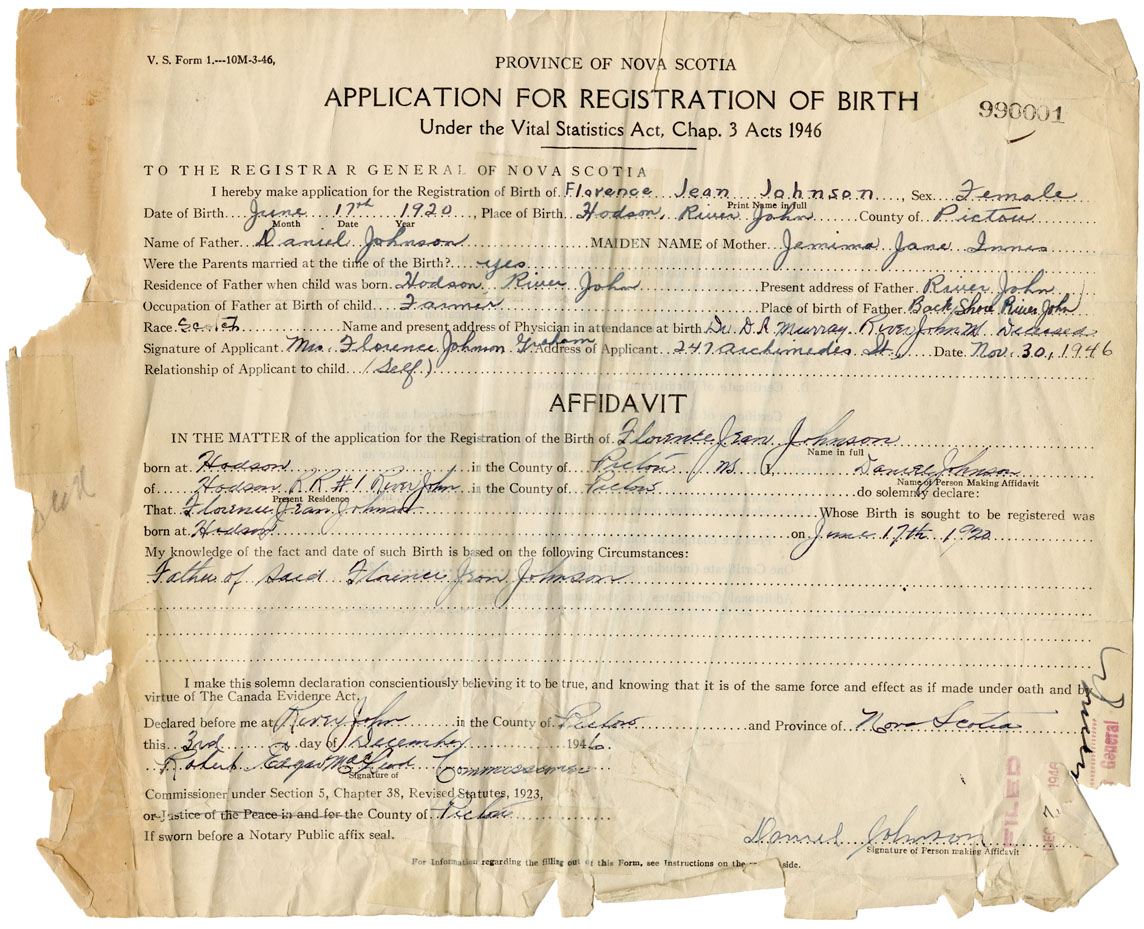 V. S. Form 1.---10M-3-46,
PROVINCE OF NOVA SCOTIA
APPLICATION FOR REGISTRATION OF BIRTH
990001
Under the Vital Statistics Act, Chap. 3 Acts 1946
TO THE REGISTRAR GENERAL OF NOVA SCOTIA
I hereby make application for the Registration of Birth of Florence Jean Johnson, Sex Female
Print Name in full
Date of Birth June 17th 1920, Place of Birth Hodson, River John County of Pictou
Month Date Year
Name of Father Daniel Johnson MAIDEN NAME of Mother Jamima Jane Innis
Were the Parents married at the time of the Birth? yes
Residence of Father when child was born Hodson River John Present address of Father River John
Occupation of Father at Birth of child Farmer Place of birth of Father Back Shore River John
Race Scotch Name and present address of Physician in attendance at birth Dr. D. A. Murray River John Deceased
Signature of Applicant Mrs. Florence Johnson Graham Address of Applicant 247 Archimedes St. Date Nov. 30, 1946
Relationship of Applicant to child (Self)
AFFIDAVIT
IN THE MATTER of the application for the Registration of the Birth of Florence Jean Johnson
Name in full
born at Hodson in the County of Pictou NS Daniel Johnson
Name of Person Making Affidavit
of Hodson RR #1 River John in the County of Pictou do solemnly declare:
Present Residence
That Florence Jean Johnson Whose Birth is sought to be registered was
born at Hodson on June 17th 1920
My knowledge of the fact and date of such Birth is based on the following Circumstances:
Father of said Florence Jean Johnson
I make this solemn declaration conscientiously believing it to be true, and knowing that it is of the same force and effect as if made under oath and by
virtue of The Canada Evidence Act.
Declared before me at River John in the County of Pictou and Province of Nova Scotia
this 3rd day of December 1946
Robert Edgar MacLeod Commissioner
Signature of
Commissioner under Section 5, Chapter 38, Revised Statutes, 1923,
or Justice of the Peace in and for the County of Pictou
If sworn before a Notary Public affix seal.
Daniel Johnson
Signature of Person making Affidavit
For Information regarding the filling out of this Form, see Instructions on the side.
General
DEC 1946